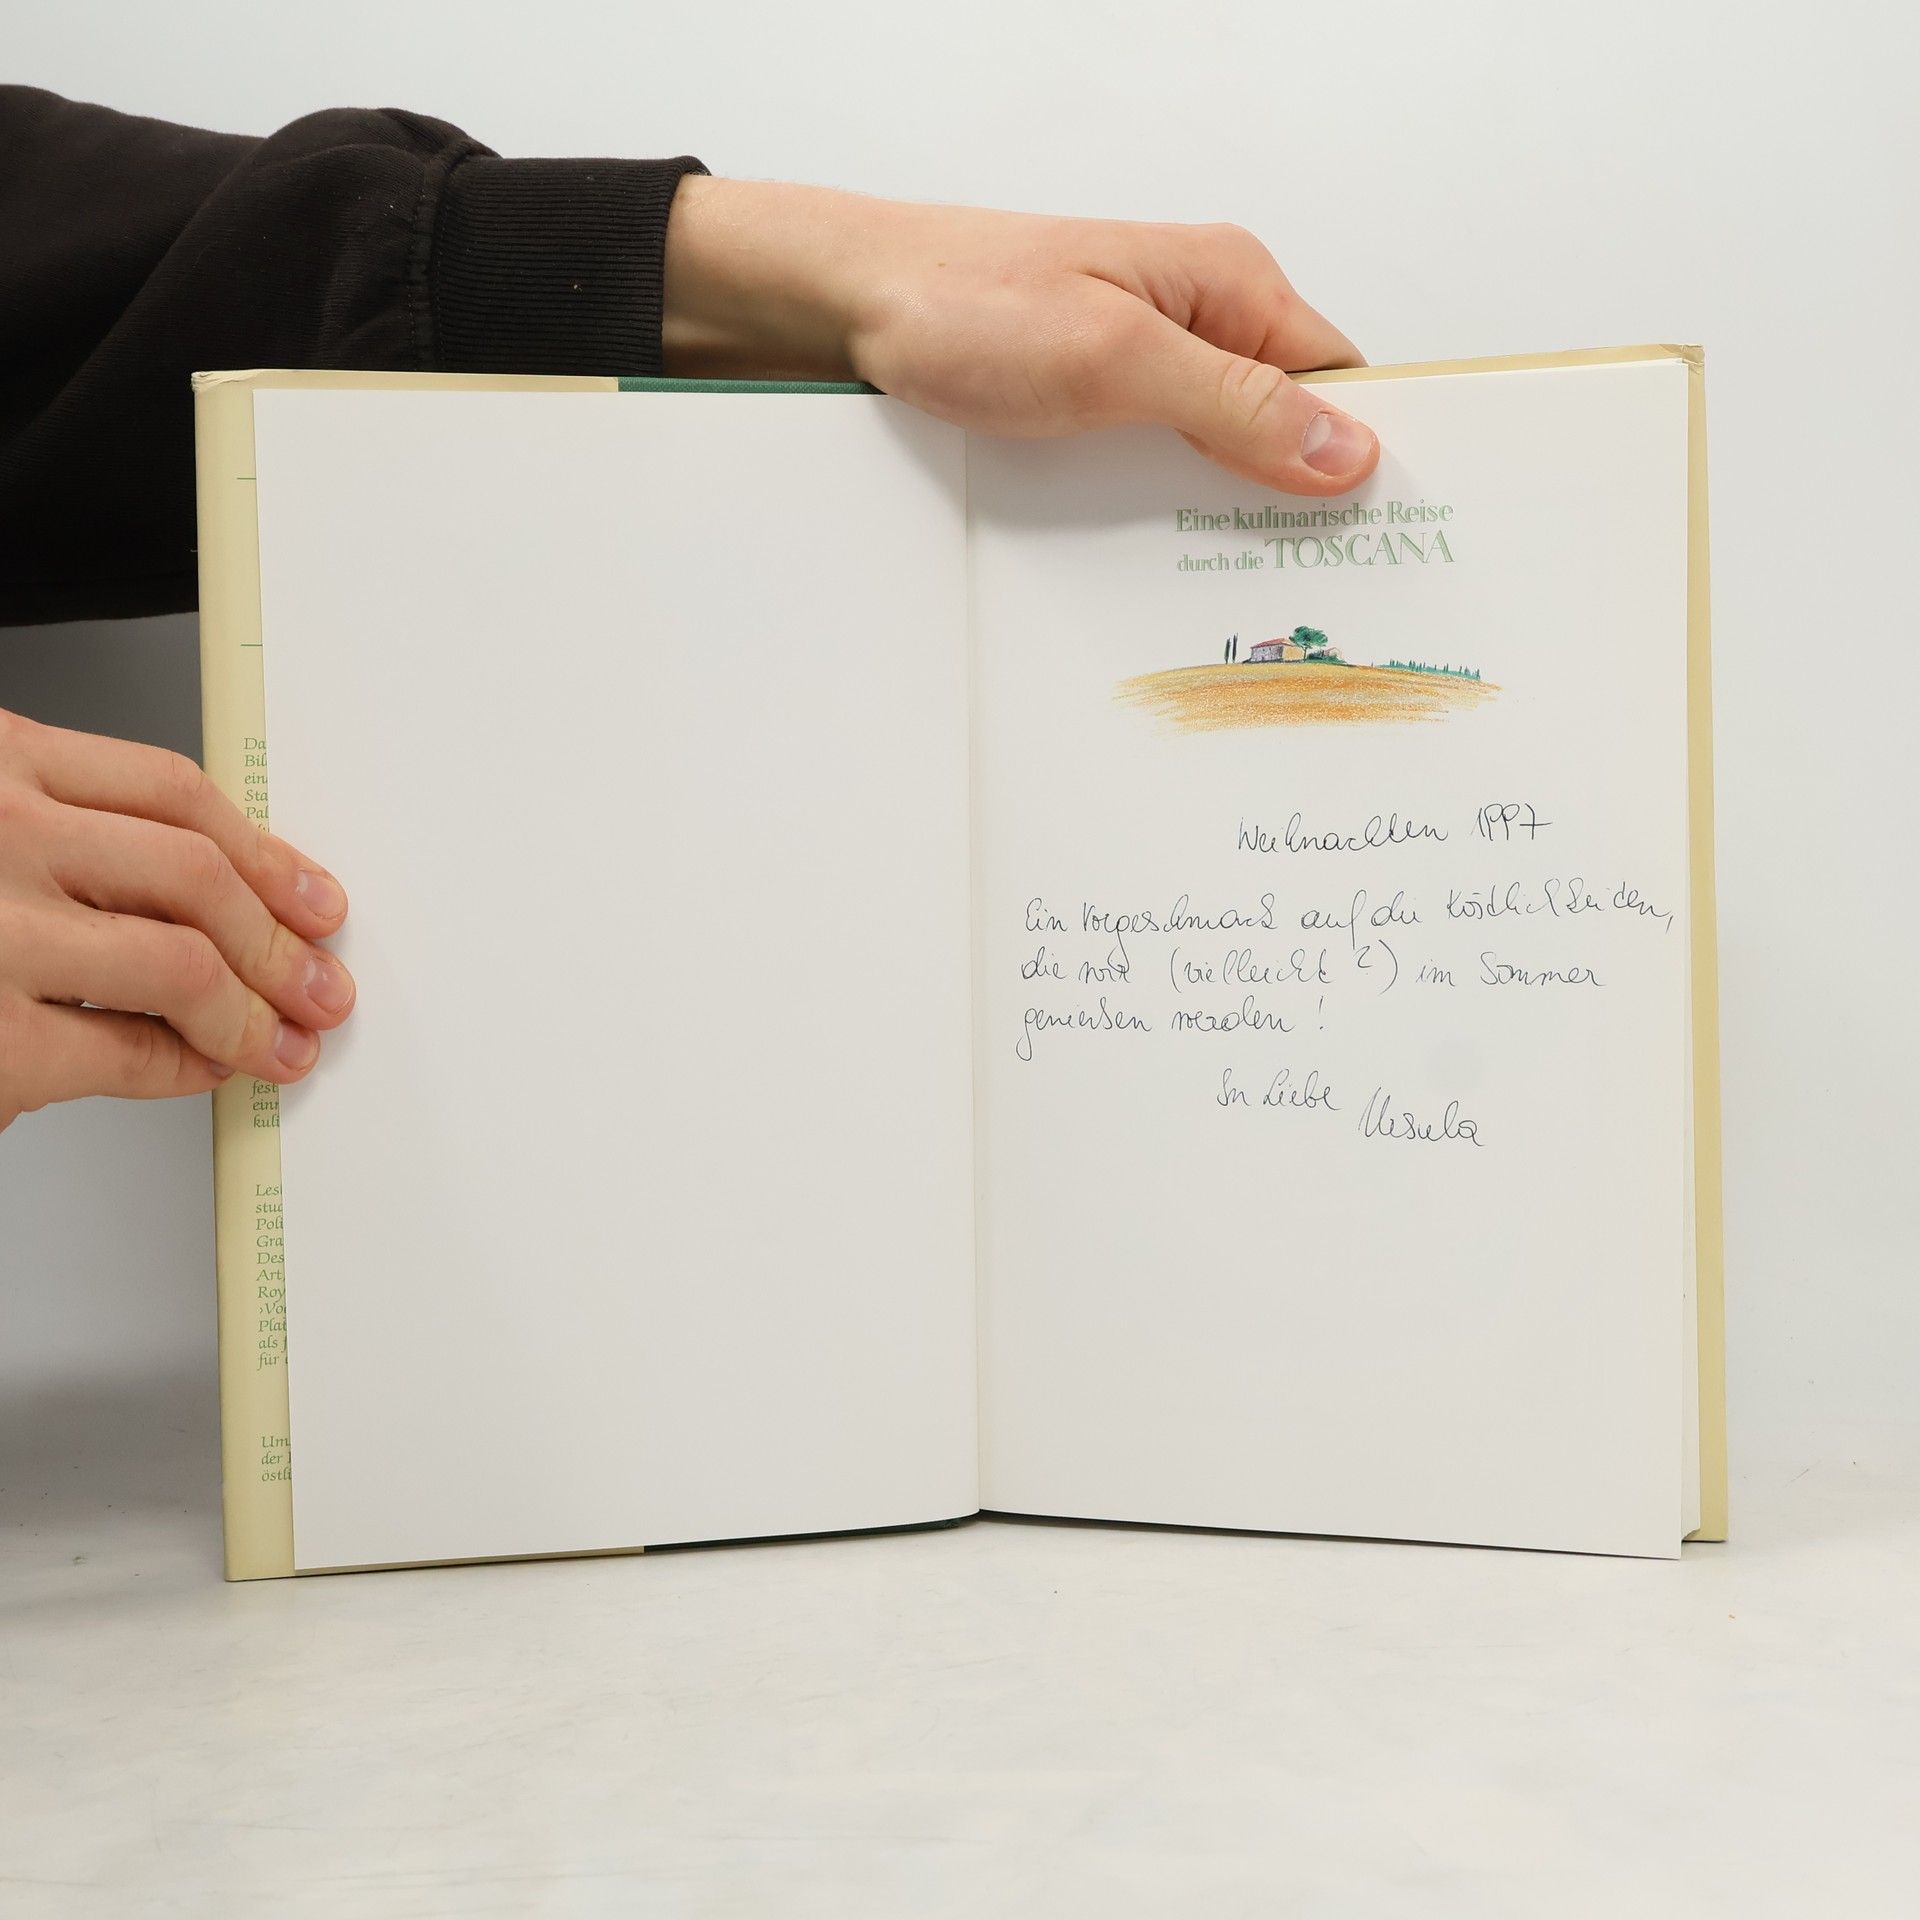 Da
Bil
ein
Sta
Pal
fest
ein
kuli
Les
stud
Poli
Gra
Des
Art,
Roy
›Vo
Plat
als f
für
Um
der
östli
Eine kulinarische Reise
durch die TOSCANA
Weihnachten 1997
Ein Vorgeschmack auf die Köstlichkeiten,
die wir (vielleicht?) im Sommer
genießen werden!
In Liebe Ursula